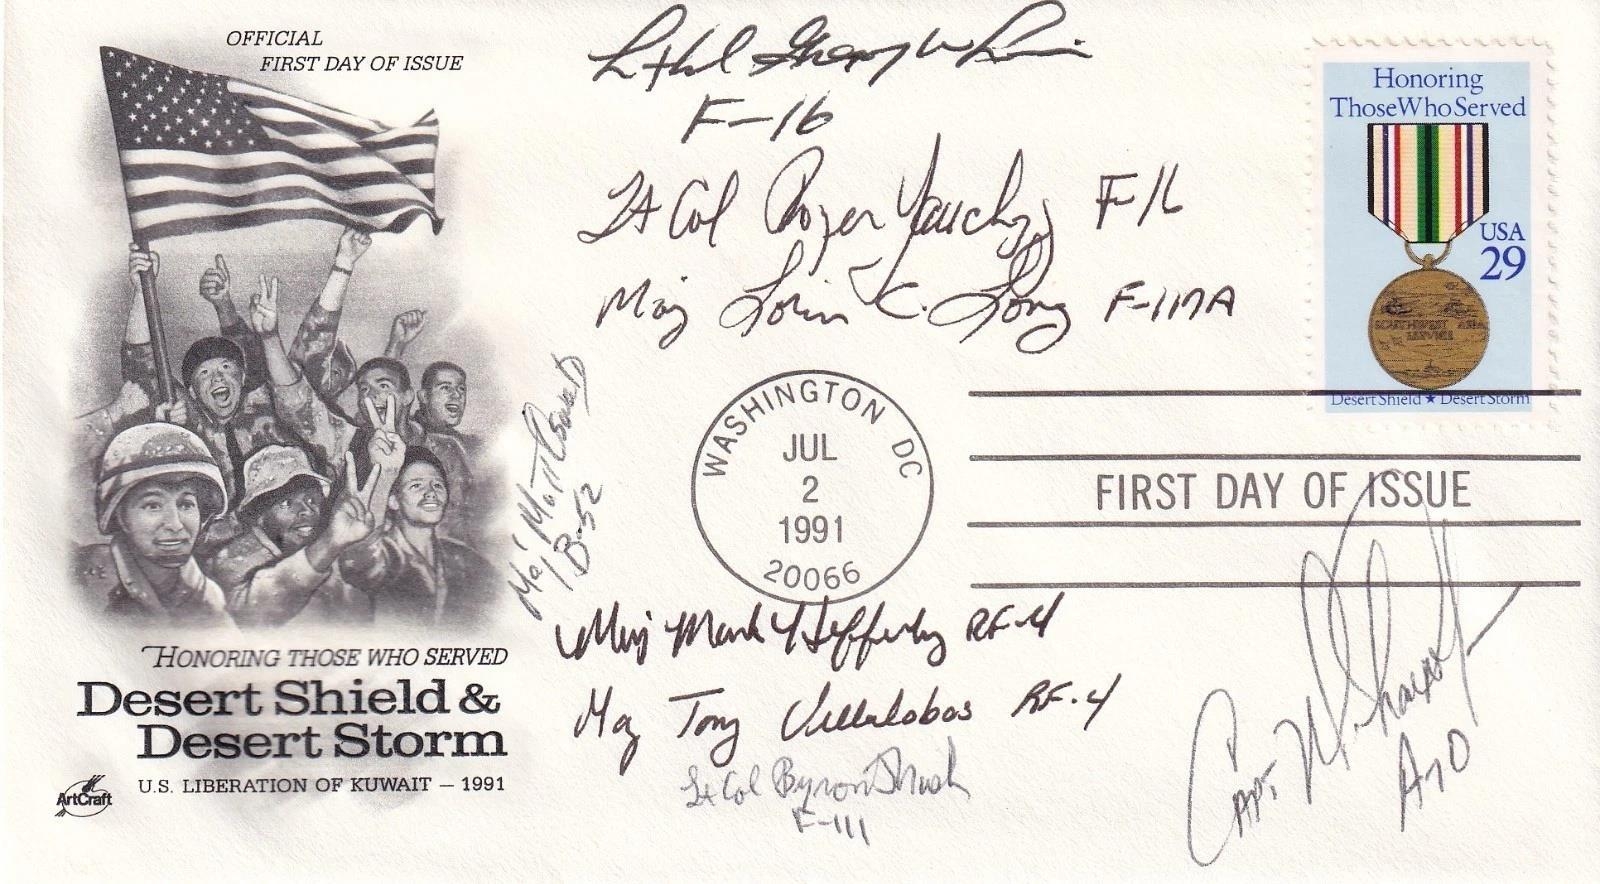 OFFICIAL
FIRST DAY OF ISSUE
F-16
Lt Col Roger F-16
Maj Lorin C. Long F-117A
Honoring
Those Who Served
USA
29
SOUTHWEST ASIA
SERVICE
Desert Shield ★ Desert Storm
WASHINGTON DC
JUL
2
1991
20066
FIRST DAY OF ISSUE
Maj Matt
B-52
Maj Mark RF-4
Maj Tony Villalobos RF-4
Lt Col Byron
F-111
Capt.
A-10
HONORING THOSE WHO SERVED
Desert Shield &
Desert Storm
U.S. LIBERATION OF KUWAIT – 1991
ArtCraft